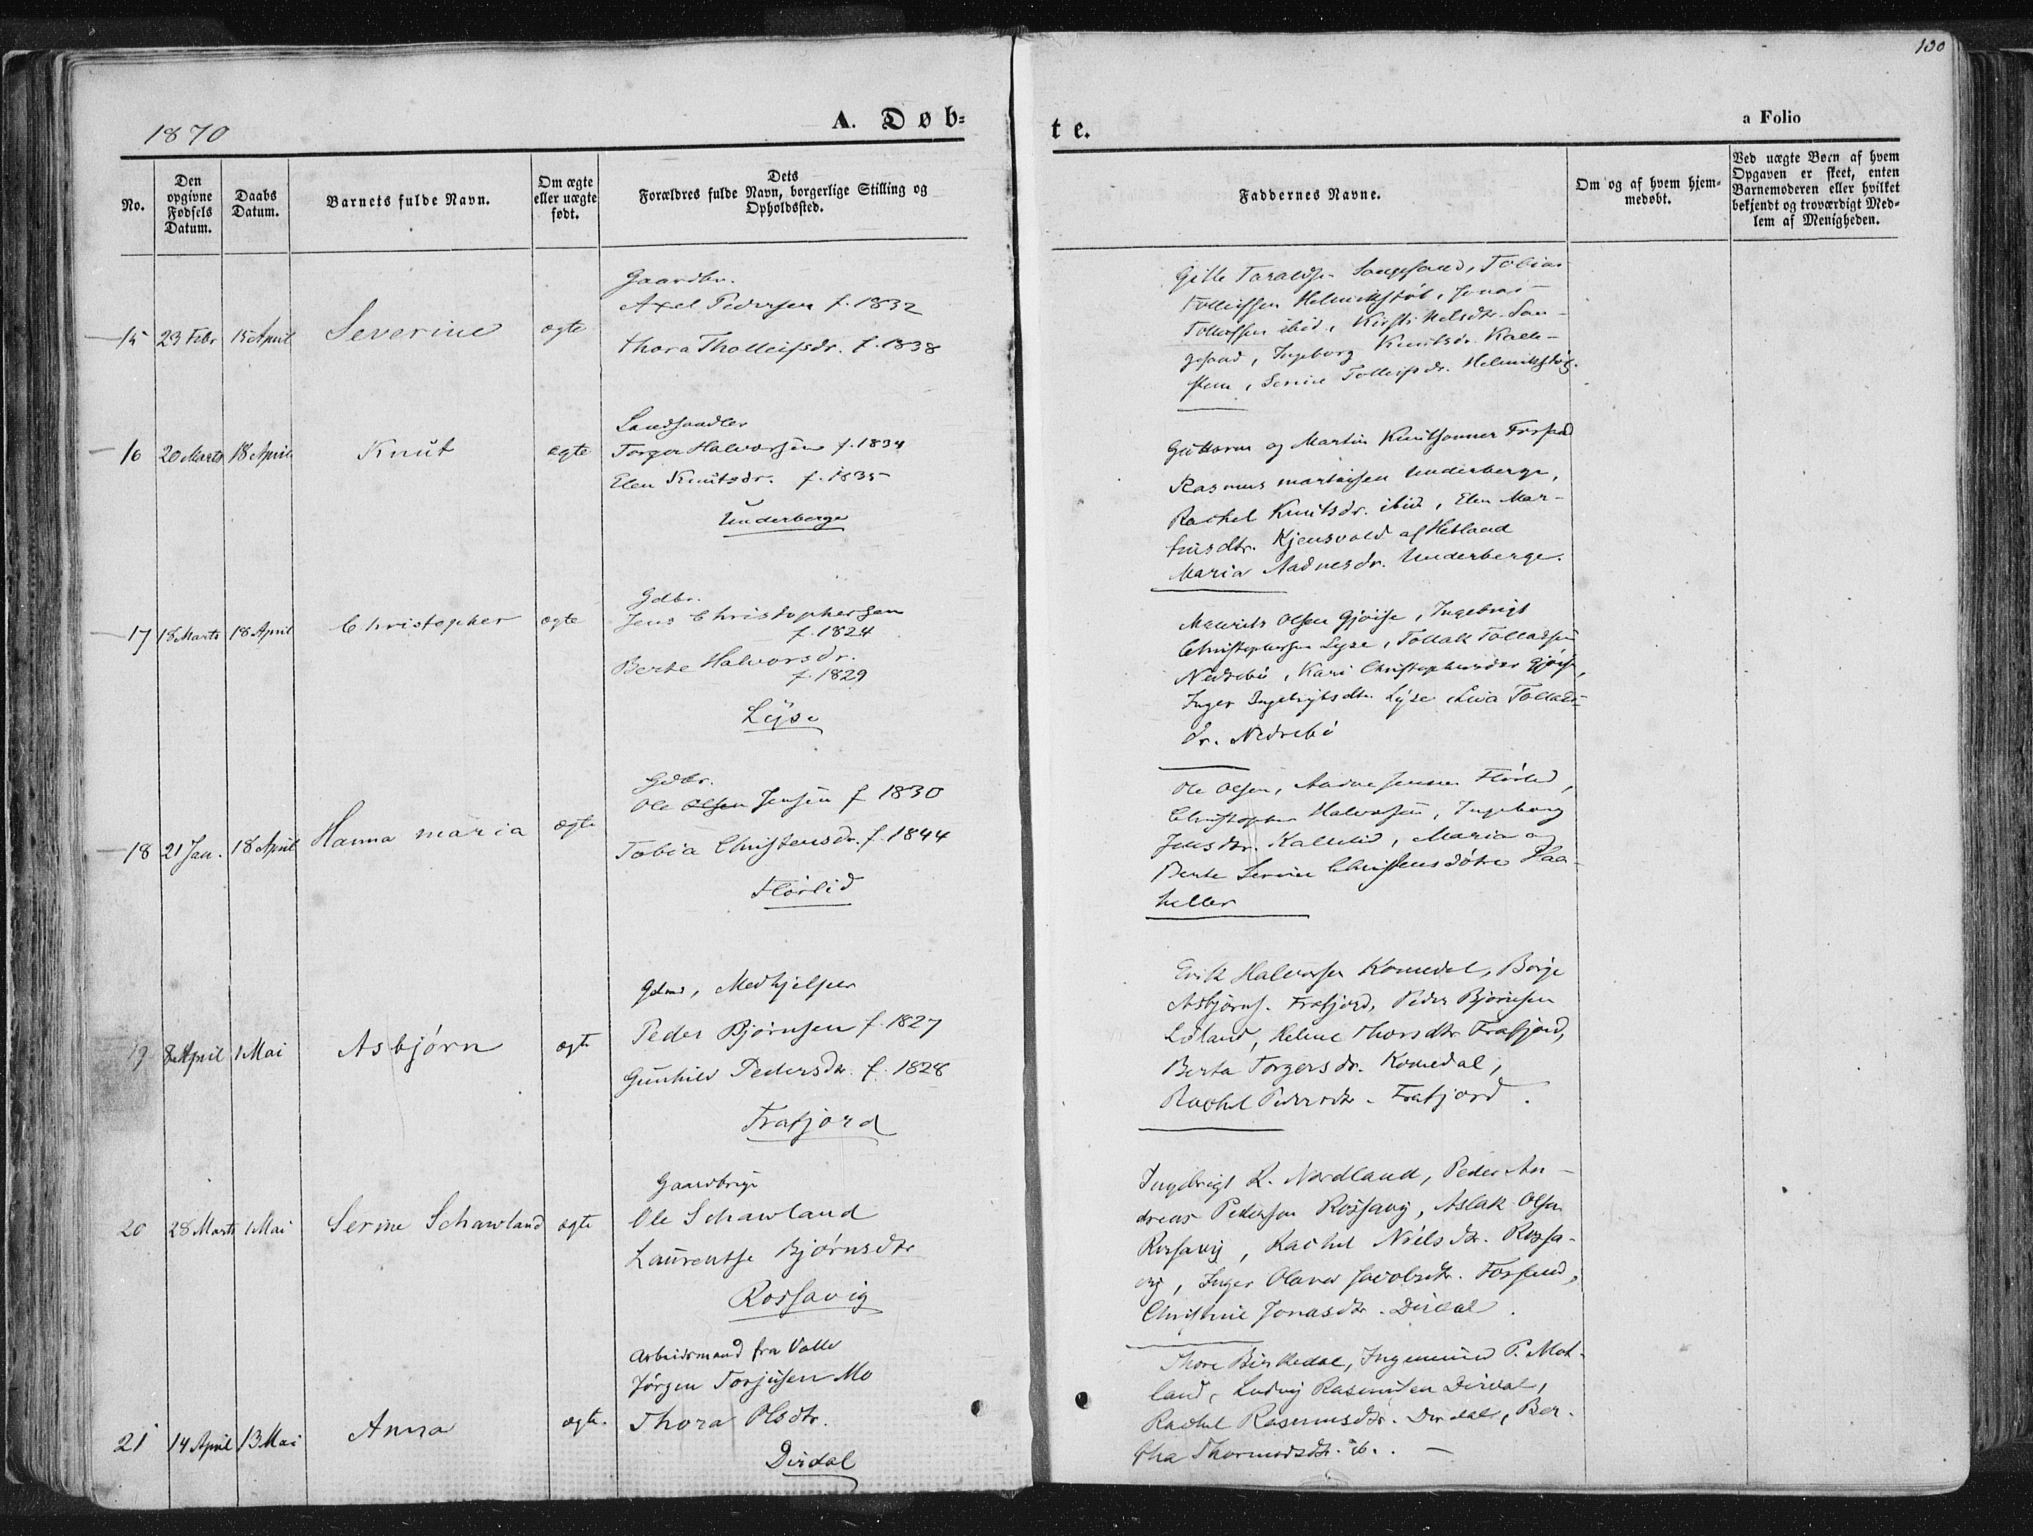 130
1870
A. Døb-
te.
a Folio
No.
Den opgivne Fødsels Datum.
Daabs Datum.
Barnets fulde Navn.
Om ægte eller uægte født.
Dets
Forældres fulde Navn, borgerlige Stilling og
Opholdssted.
Faddernes Navne.
Om og af hvem hjem-
medøbt.
Ved uægte Børn af hvem
Opgaven er skeet, enten
Barnemoderen eller hvilket
bekjendt og troværdigt Med-
lem af Menigheden.
15 23 Febr 15 April Severine ægte
Gaardbr.
Axel Pedersen f. 1832
Thora Tholleifsdr. f. 1838
Gitle Taraldsen Songesand, Tobias
Tolleifsen Helmikstøl, Jonas
Tolleifsen ibid, Kirsti Nelsdtr. Son-
gesand, Ingeborg Knutsdr. Kalle-
sten, Serine Tolleifsdr. Helmikstøl.
16 20 Marts 18 April Knut ægte
Landhandler
Torger Halvorsen f. 1834
Elen Knutsdr. f. 1835
Underberge
Guttorm og Martin Knutsønner Forsand
Rasmus Martinsen Underberge,
Rachel Knutsdr. ibid, Elen Mar-
tinsdtr. Kjensvold af Hetland
Maria Aadnesdr. Underberge.
17 18 Marts 18 April Christopher ægte
Gdbr.
Jens Christophersen
f. 1824
Berte Halvorsdr.
f. 1829
Lyse
Maurits Olsen Gjøise, Ingebrigt
Christophersen Lyse, Tollak Tolladsen
Nedrebø, Kari Christophersdr Gjøise,
Inger Ingebrigtsdtr. Lyse, Liva Tollads-
dr. Nedrebø
18 21 Jan. 18 April Hanna Maria ægte
Gdbr.
Ole Olsen Jensen f 1830
Tobia Christensdr. f. 1844
Flørlid
Ole Olsen, Aadne Jensen Flørlid,
Christopher Halvorsen, Ingeborg
Jensdtr. Kallelid, Maria og
Berte Serine Christensdøtre Haa-
heller
19 8 April 1 Mai Asbjørn ægte
Gdmd, Medhjelper
Peder Bjørnsen f. 1827
Gunhild Pedersdr. f. 1828
Frafjord
Erik Halvorsen Komedal, Børge
Asbjørns. Frafjord, Peder Bjørnsen
Løland, Helene Thorsdtr Frafjord,
Berta Torgersdr. Komedal,
Rachel Pedersdtr. Frafjord.
20 28 Marts 1 Mai Serine Schawland ægte
Gaardbrug.
Ole Schawland
Laurentse Bjørnsdtr
Rossavig
Ingebrigt K. Nordland, Peder An-
dreas Pedersen Rossavig, Aslak Olsen
Rossavig, Rachel Nielsdtr. Rossa-
vig, Inger Olava Jacobsdtr. Forsand,
Christine Jonasdtr. Dirdal.
21 14 April 13 Mai Anna ægte.
Arbeidsmand fra Valle
Jørgen Torjusen Mo
Thora Olsdtr.
Dirdal
Thore Birkedal, Ingemund P. Mot-
land, Ludvig Rasmusen Dirdal,
Rachel Rasmusdtr. Dirdal, Ber-
tha Thormodsdtr. ib. —